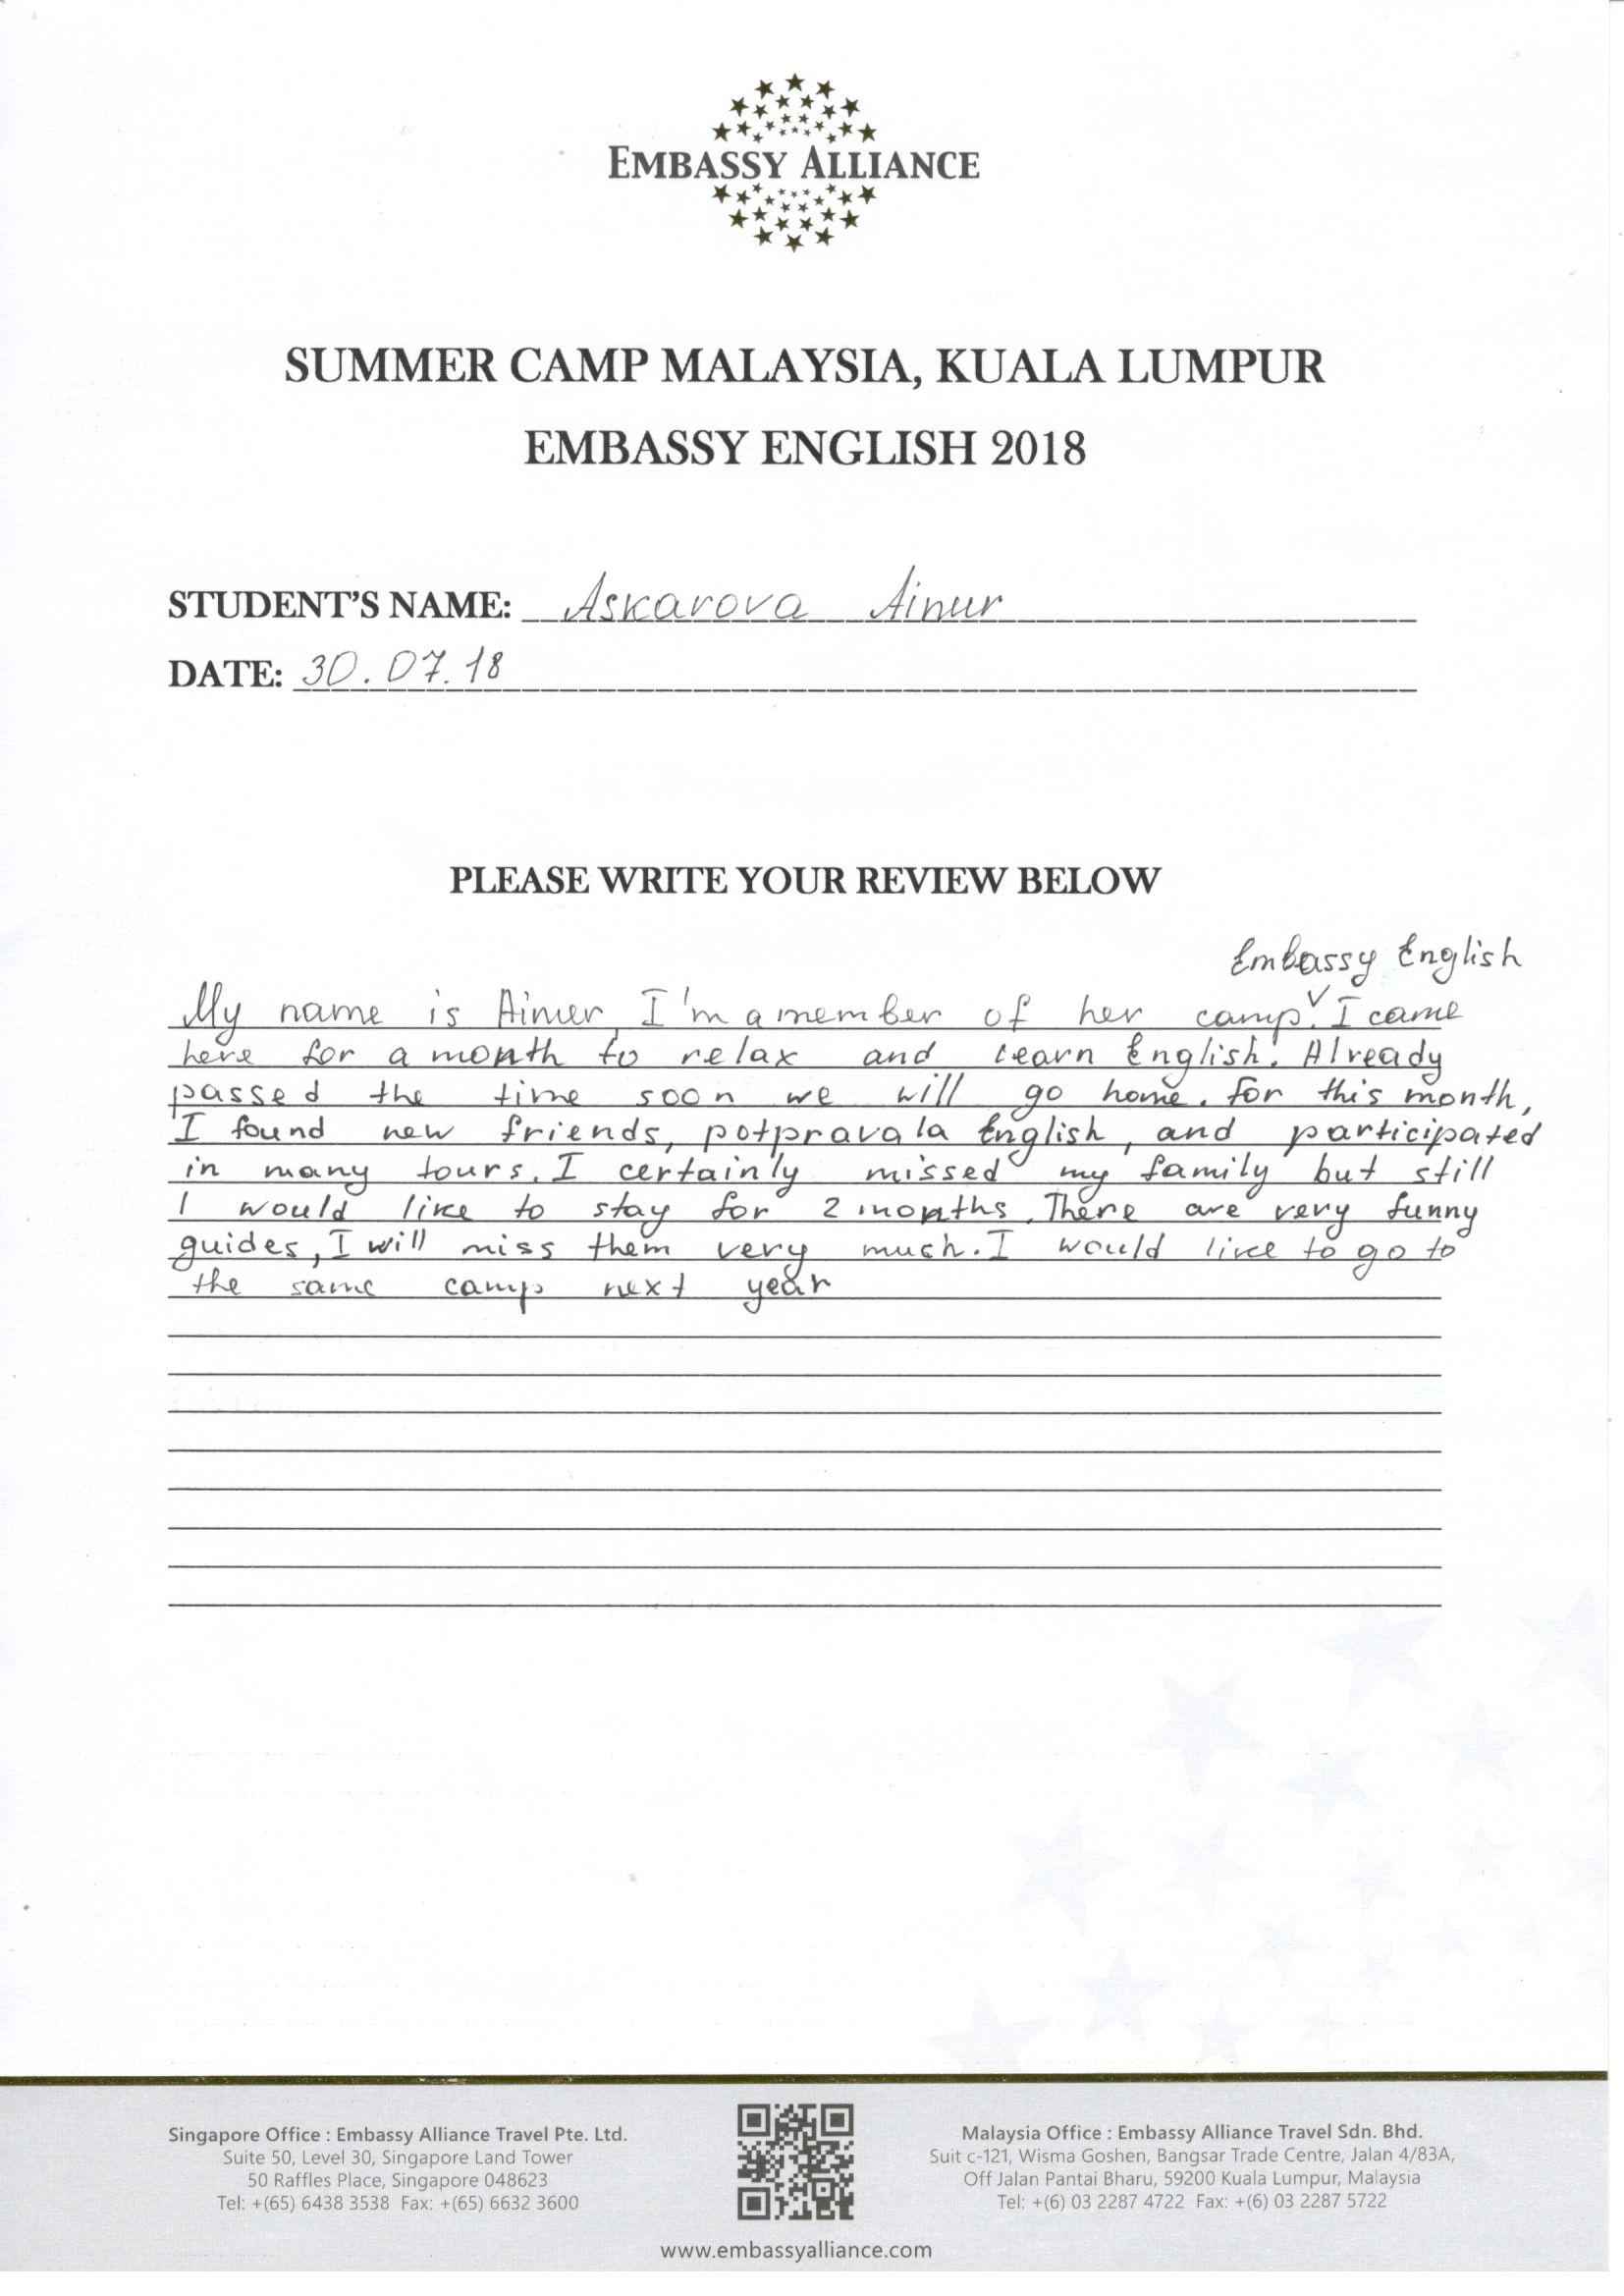 EMBASSY ALLIANCE
SUMMER CAMP MALAYSIA, KUALA LUMPUR
EMBASSY ENGLISH 2018
STUDENT'S NAME: Askarova Ainur
DATE: 30.07.18
PLEASE WRITE YOUR REVIEW BELOW
Embassy English
My name is Ainur, I'm a member of her camp. I came
here for a month to relax and learn English. Already
passed the time soon we will go home. For this month,
I found new friends, potpravala English, and participated
in many tours. I certainly missed my family but still
I would like to stay for 2 months. There are very funny
guides, I will miss them very much. I would like to go to
the same camp next year
Singapore Office : Embassy Alliance Travel Pte. Ltd.
Suite 50, Level 30, Singapore Land Tower
50 Raffles Place, Singapore 048623
Tel: +(65) 6438 3538 Fax: +(65) 6632 3600
Malaysia Office : Embassy Alliance Travel Sdn. Bhd.
Suit c-121, Wisma Goshen, Bangsar Trade Centre, Jalan 4/83A,
Off Jalan Pantai Bharu, 59200 Kuala Lumpur, Malaysia
Tel: +(6) 03 2287 4722 Fax: +(6) 03 2287 5722
www.embassyalliance.com